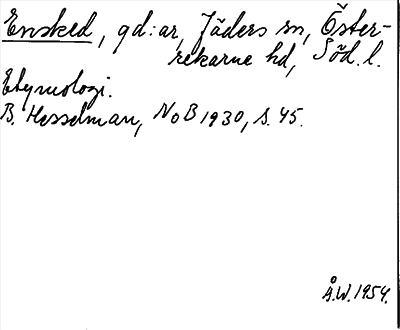 Ensked, gd:ar, Jäders sn, Öster-
rekarne hd, Söd. l.
Etymologi.
B. Hesselman, NoB 1930, s. 45.
Å.W. 1954.